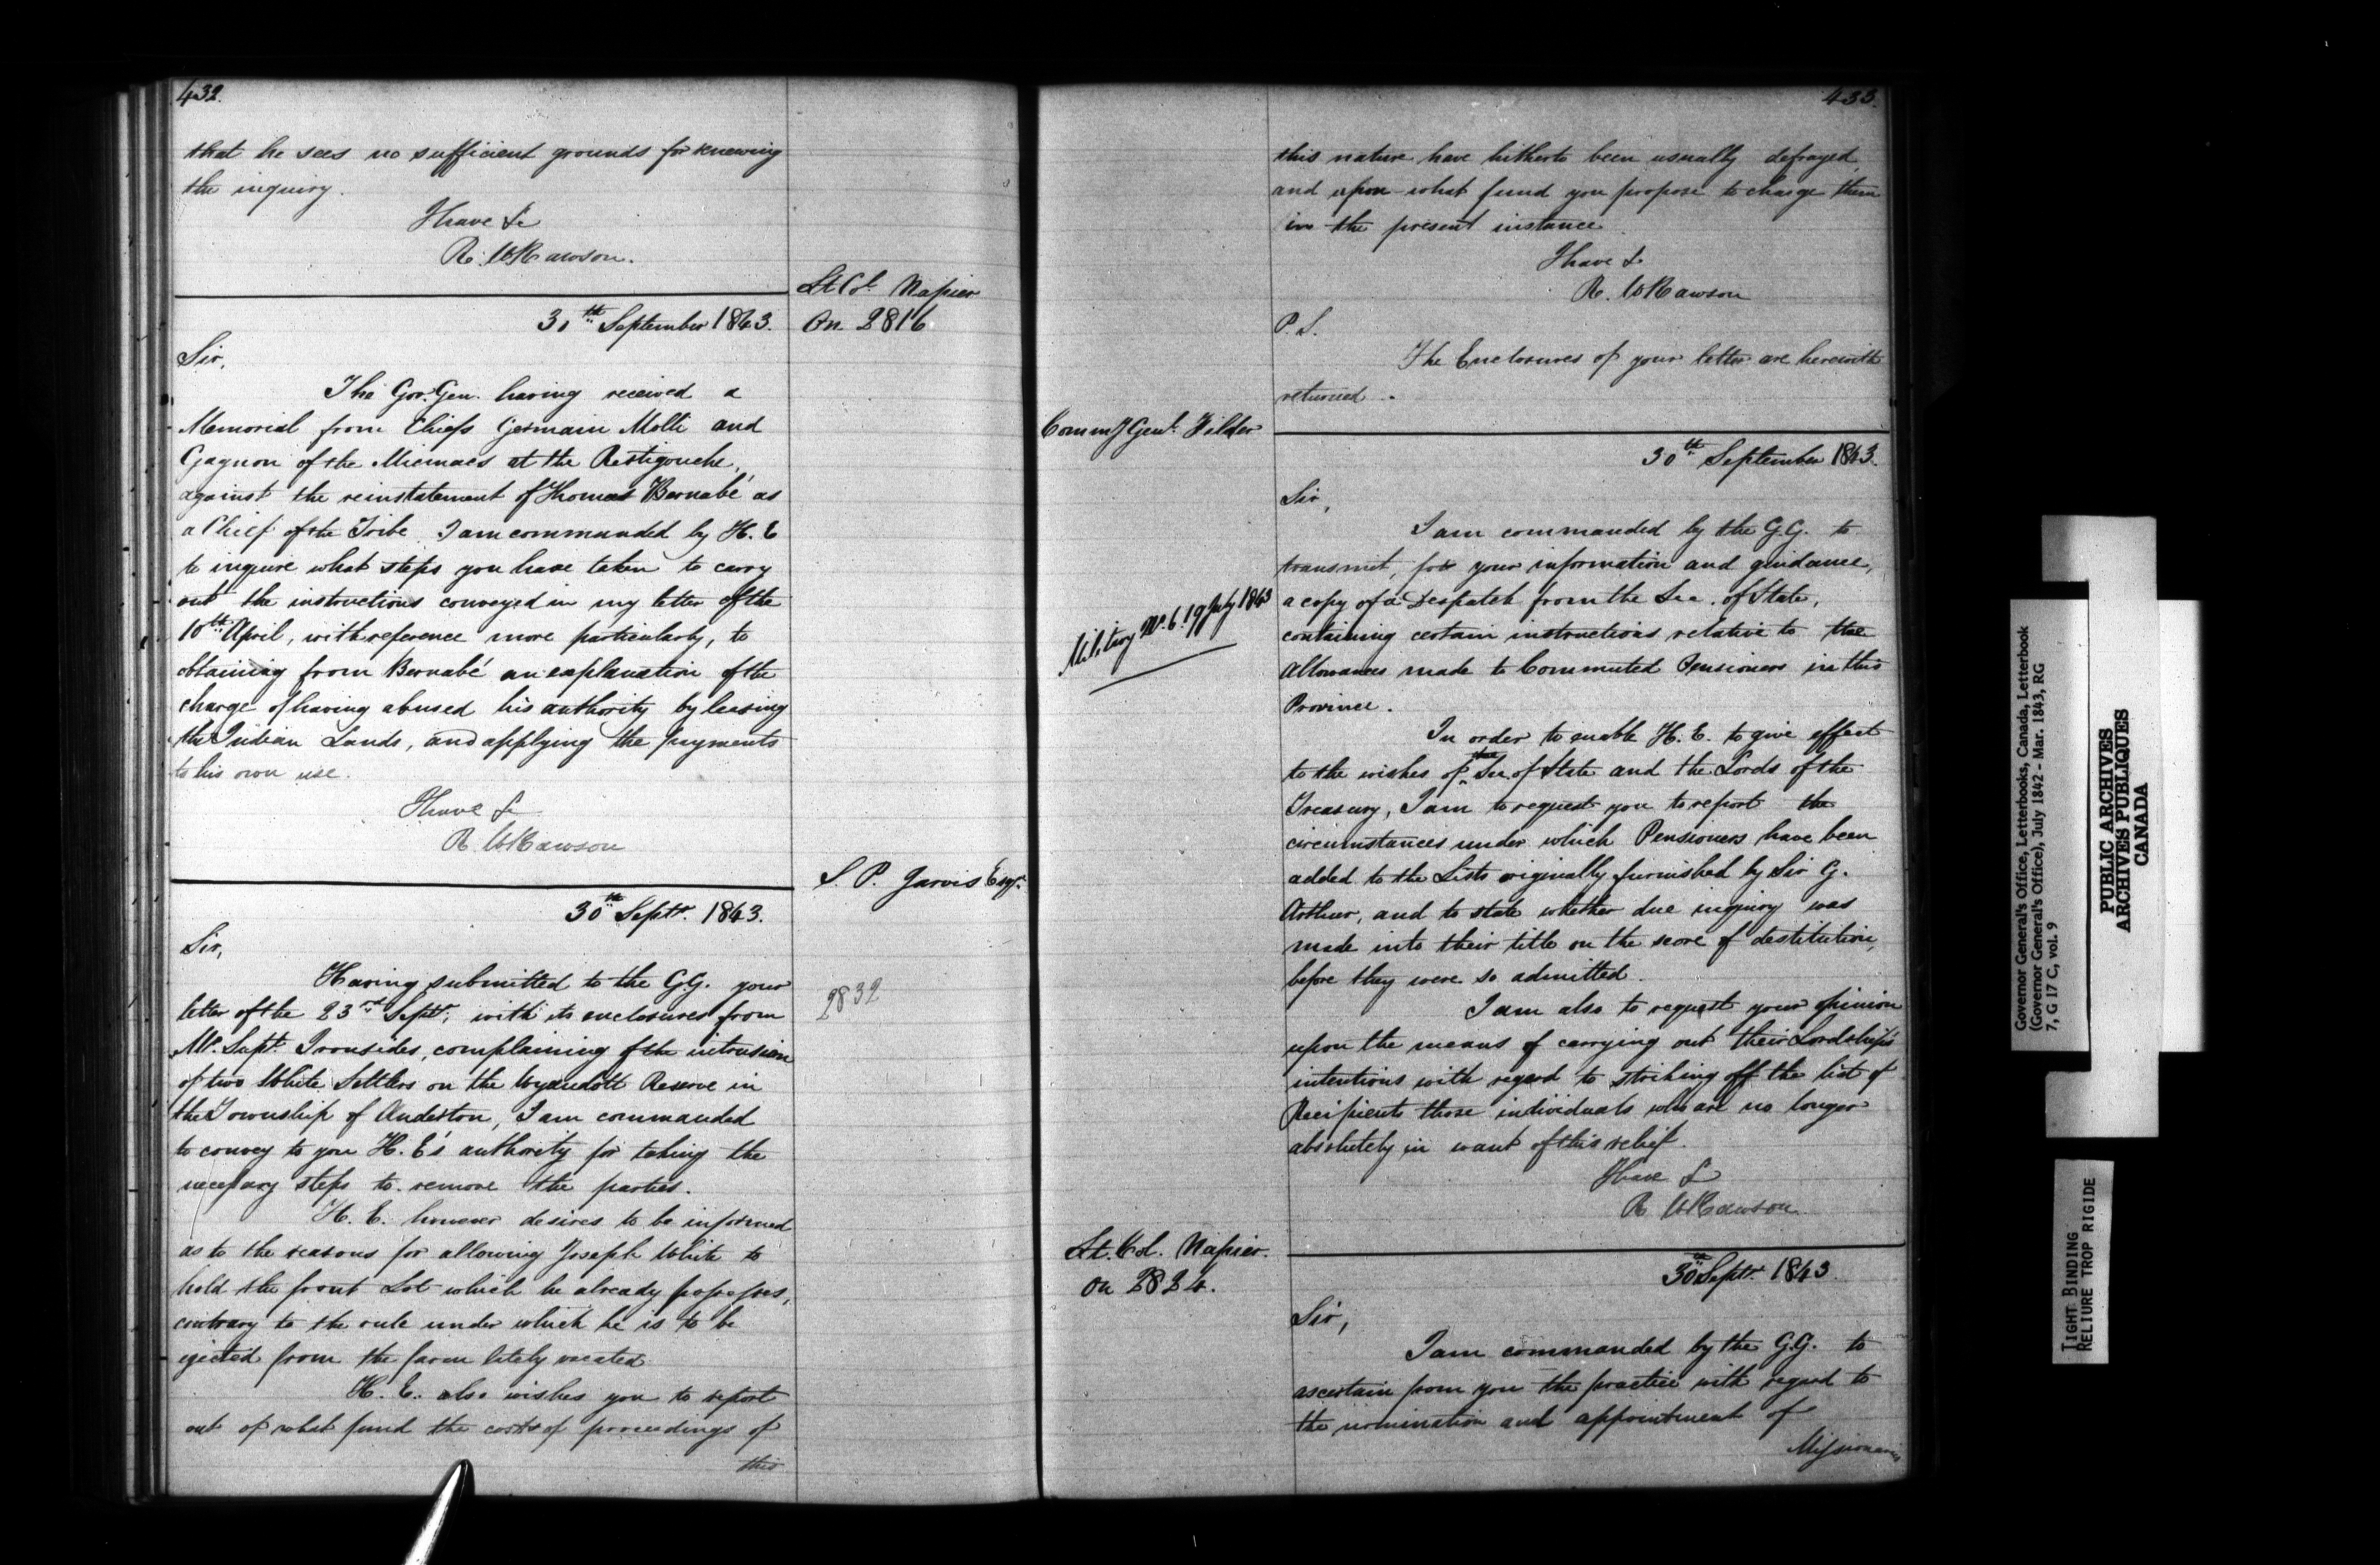 432.
that he sees no sufficient grounds for renewing
the inquiry.
I have &c
R. W Rawson.
Lt Col. Napier
On 2816.
30th September 1843.
Sir,
The Gov. Gen. having received a
Memorial from Chiefs Germain Molli and
Gagnon of the Micmacs at the Restigouche,
against the reinstatement of Thomas Barnabé as
a Chief of the Tribe I am commanded by H. E
to inquire what steps you have taken to carry
out the instructions conveyed in my letter of the
10th April, with reference more particularly, to
obtaining from Barnabé an explanation of the
charge of having abused his authority by leasing
the Indian Lands, and applying the payments
to his own use.
I have &c
R W Rawson
S. P. Jarvis Esqr.
30th Septr. 1843.
Sir,
Having submitted to the G.G. your
2832
letter of the 23rd Septr, with its enclosures from
Mr. Supt. Ironsides, complaining of the intrusion
of two White Settlers on the Wyandott Reserve in
the Township of Anderton, I am commanded
to convey to you H. E's authority for taking the
necessary steps to remove the parties.
H. E. however desires to be informed
as to the reasons for allowing Joseph White to
hold the front Lot which he already possesses,
contrary to the rule under which he is to be
ejected from the farm lately vacated.
H. E. also wishes you to report
out of what fund the costs of proceedings of
this
433.
this nature have hitherto been usually defrayed
and upon what fund you propose to charge them
in the present instance.
I have &c
R. W Rawson
P. S.
The Enclosures of your letter are herewith
returned.
Commy Genl. Filder
30th September 1843.
Sir,
I am commanded by the G.G. to
transmit, for your information and guidance,
Military No. 6. 19 July 1843
a copy of a Despatch from the Sec. of State,
containing certain instructions relative to the
allowances made to Commuted Pensioners in this
Province.
In order to enable H. E. to give effect
to the wishes of the Sec. of State and the Lords of the
Treasury, I am to request you to report the
circumstances under which Pensioners have been
added to the Lists originally furnished by Sir G.
Arthur, and to state whether due inquiry was
made into their title on the score of destitution,
before they were so admitted.
I am also to request your opinion
upon the means of carrying out their Lordships
intentions with regard to striking off the list of
Recipients those individuals who are no longer
absolutely in want of this relief.
I have &c
R W Rawson
Lt. Col. Napier.
On 2824.
30th Septr. 1843.
Sir,
I am commanded by the G.G. to
ascertain from you the practice with regard to
the nomination and appointment of
Missionaries
Governor General's Office, Letterbooks, Canada, Letterbook
(Governor General's Office), July 1842 - Mar. 1843, RG
7, G 17 C, vol. 9
PUBLIC ARCHIVES
ARCHIVES PUBLIQUES
CANADA
TIGHT BINDING
RELIURE TROP RIGIDE